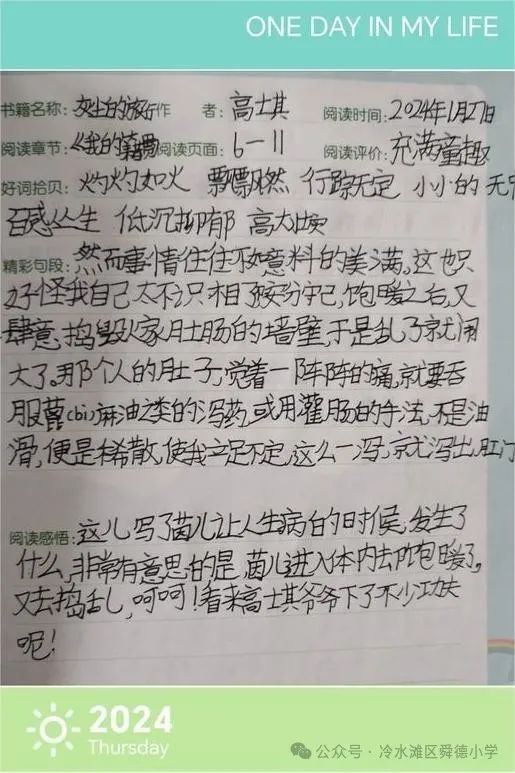 ONE DAY IN MY LIFE
书籍名称：灰尘的旅行 作者：高士其 阅读时间：2024年1月27日
阅读章节：《我的籍贯 阅读页面：6—11 阅读评价：充满童趣
好词拾贝：灼灼如火 飘飘然 行踪无定 小小的
百感丛生 低沉抑郁 高大壮实
精彩句段：然而事情往往不如意料的美满，这也只
好怪我自己太不识相了，不安分守己，饱暖之后，又
肆意捣毁人家肚肠的墙壁，于是乱子就闹
大了。那个人的肚子，觉着一阵阵的痛，就要吞
服蓖(bì)麻油之类的泻药，或用灌肠的手法，不是油
滑，便是稀散，使我立足不定，这么一泻，就泻出肛门
阅读感悟：这儿写了菌儿让人生病的时候，发生了
什么，非常有意思的是，菌儿进入体内去吃饱暖了，
又去捣乱，呵呵！看来高士其爷爷下了不少功夫
呢！
2024
Thursday
公众号·冷水滩区舜德小学